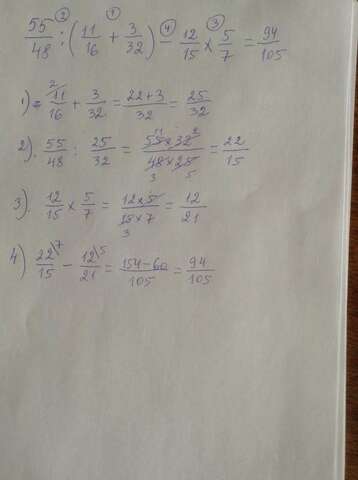 ② ① ④ ③
55/48 : (11/16 + 3/32) - 12/15 × 5/7 = 94/105
1) = 11\2/16 + 3/32 = 22+3/32 = 25/32
2). 55/48 : 25/32 = 55 11 × 32 2/48 3 × 25 5 = 22/15
3). 12/15 × 5/7 = 12×5/15 3 × 7 = 12/21
4) 22\7/15 - 12\5/21 = 154-60/105 = 94/105